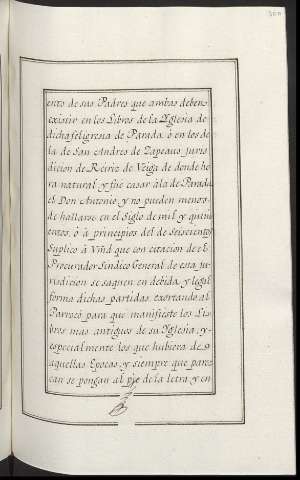 ento de sus Padres que ambas deben
existir en los Libros de la Yglesia de
dicha feligresia de Parada, ó en los de
la de San Andres de Zapeaus, juris
dicion de Reiriz de Veiga de donde he
ra natural y fue casar á la de Parada
el Don Antonio, y no pueden menos
de hallarse en el Siglo de mil y quini
entos, ó á principios del de Seiscientos
Suplico à Vmd que con citacion de el
Procurador Sindico General de esta ju
risdicion se saquen en debida, y legal
forma dichas partidas, exortando al
Parroco, para que manifieste los Li
bros mas antiguos de su Yglesia, y
especialmente los que hubiere de
aquellas Epocas, y siempre que pares
can se pongan al pie de la letra, y en